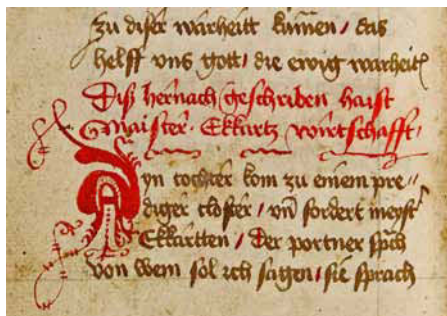 zu diser warheitt kumen / das
helff vns gott / die ewig warheit
Diß hernach geschriben haist
Maister · Ekkartz wirtschafft /
Ayn tochter kom zu einem pre //
diger closter / vn̄ fordert meyst
Ekkartten / Der portner sp̄ch
von wem sol ich sagen / sie sprach